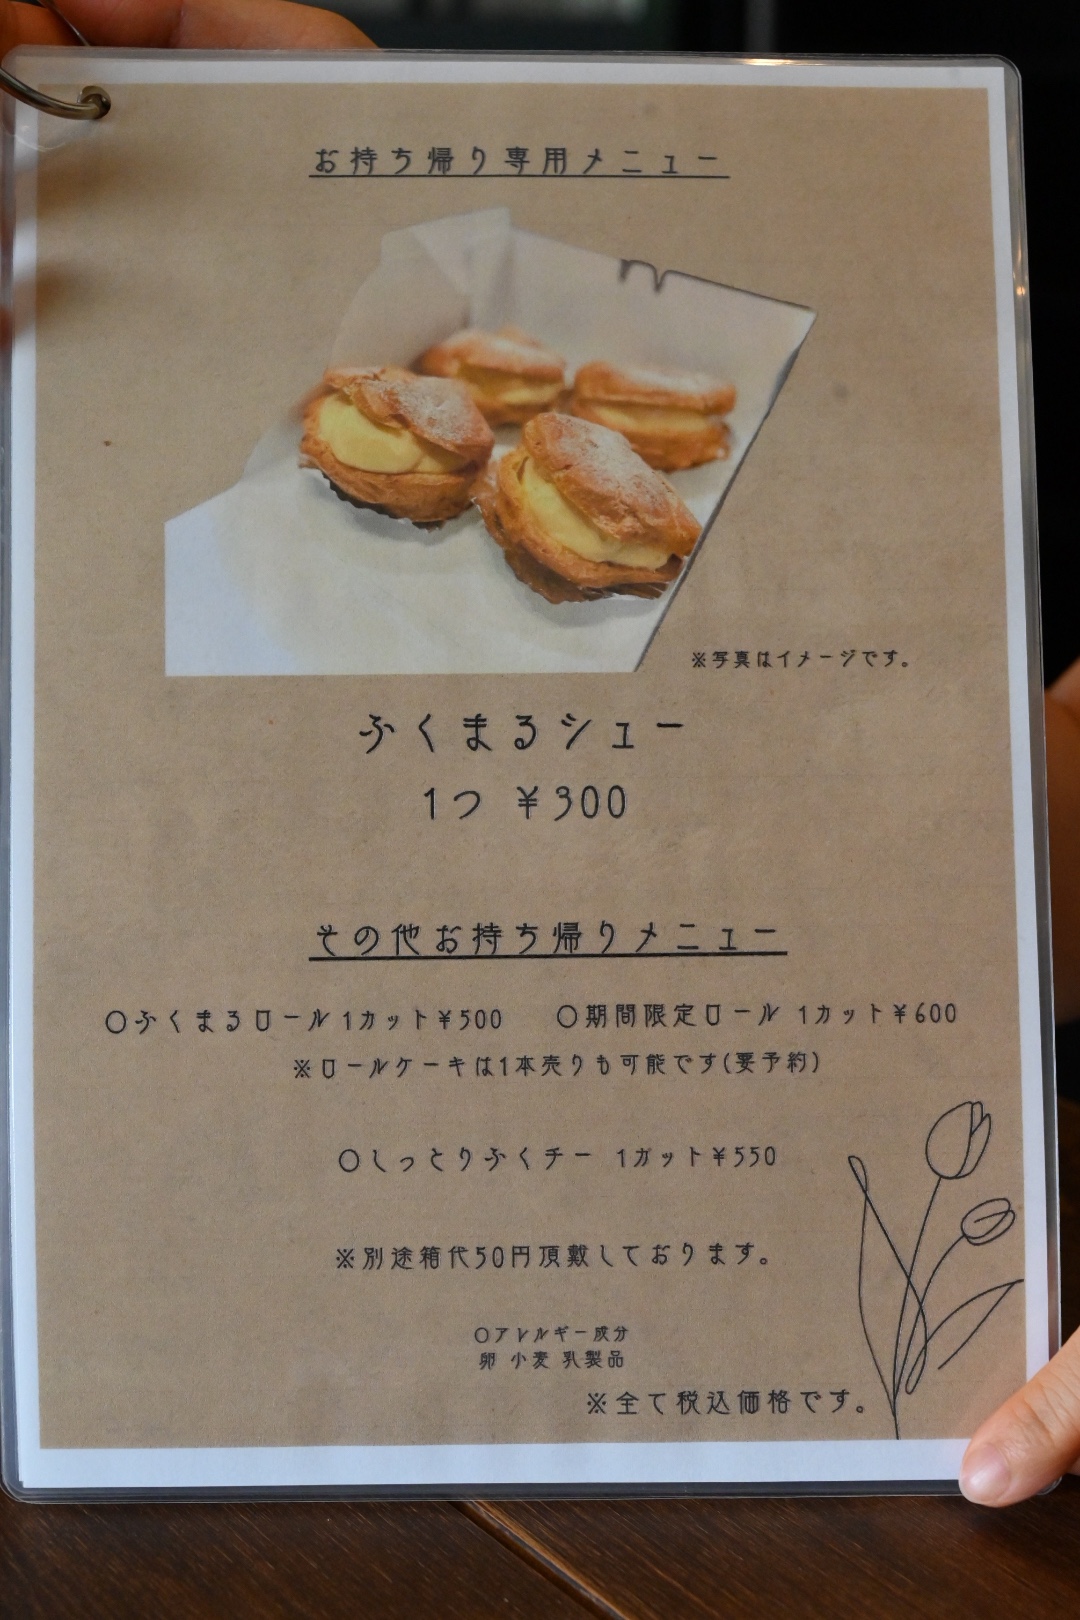 お持ち帰り専用メニュー
※写真はイメージです。
ふくまるシュー
1つ ¥300
その他お持ち帰りメニュー
○ふくまるロール 1カット¥500 ○期間限定ロール 1カット¥600
※ロールケーキは1本売りも可能です(要予約)
○しっとりふくチー 1カット¥550
※別途箱代50円頂戴しております。
○アレルギー成分
卵 小麦 乳製品
※全て税込価格です。